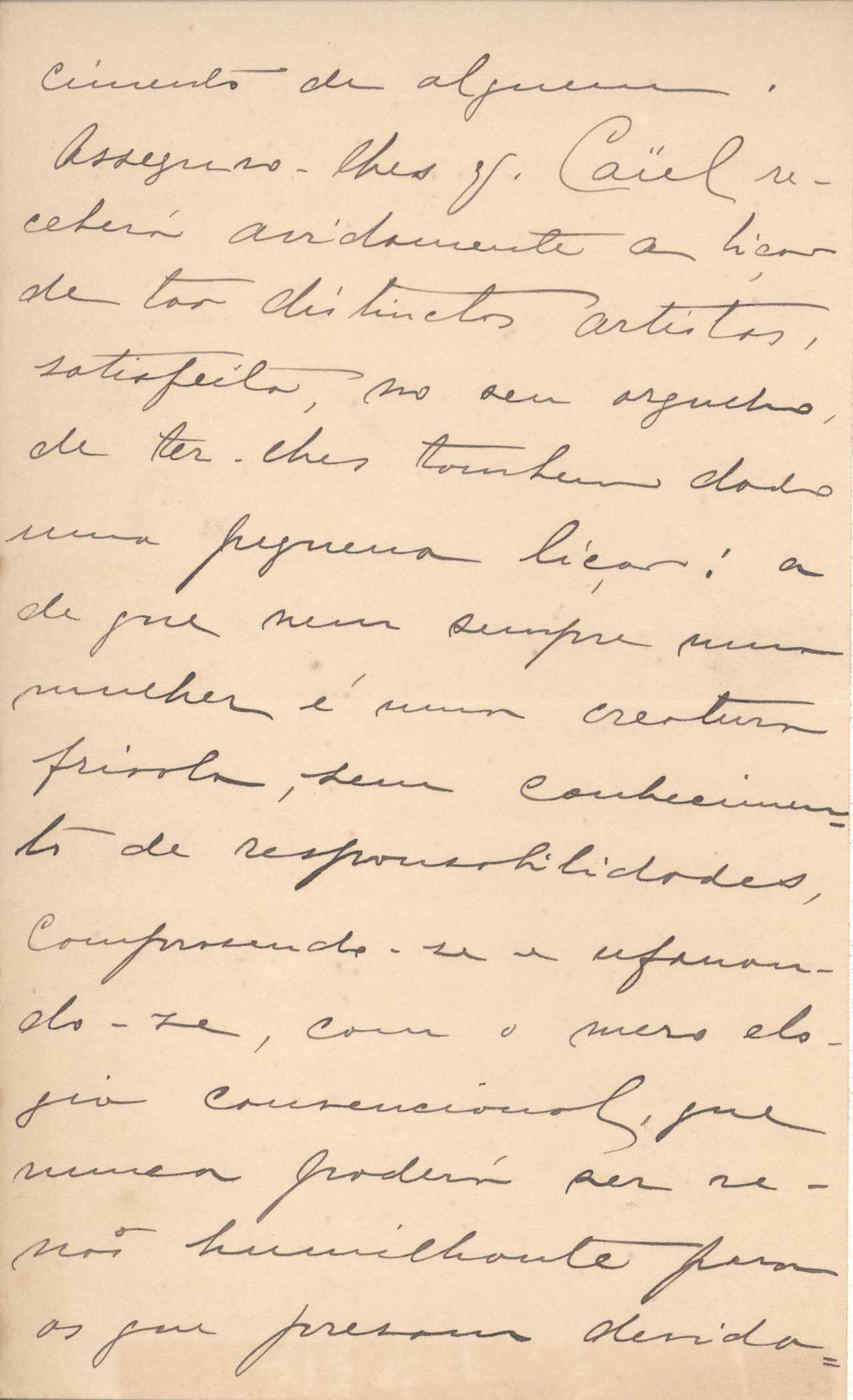 cimento de alguem.
Asseguro-lhes q. Caïel re-
ceberá avidamente a liçao
de tao distinctos artistas,
satisfeita, no seu orgulho,
de ter-lhes tambem dado
uma pequena liçao: a
de que nem sempre uma
mulher é uma creatura
frivola, sem conhecimen=
to de responsabilidades,
comprasendo-se e ufanan-
do-se, com o mero elo-
gio convencional, que
nunca poderá ser se-
não humilhante para
os que presam devida=